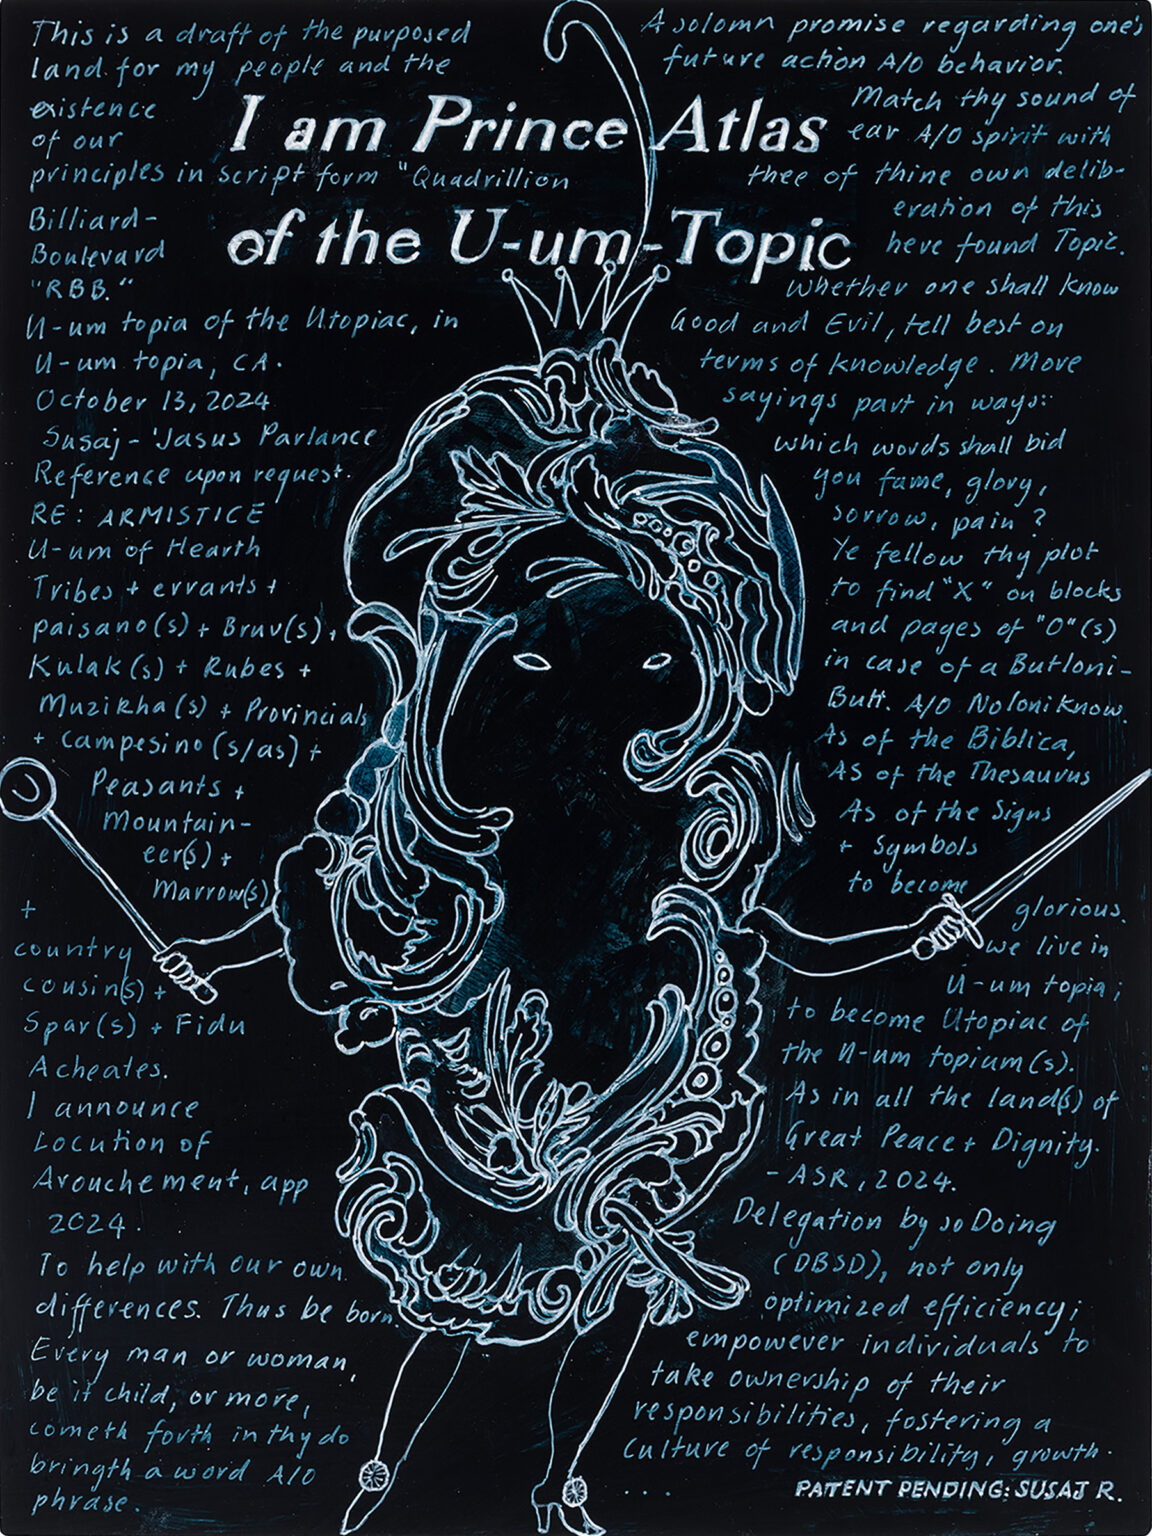 I am Prince Atlas
of the U-um-Topic
This is a draft of the purposed
land for my people and the
existence
of our
principles in script form "Quadrillion
Billiard-
Boulevard
"RBB."
U-um topia of the Utopiac, in
U-um topia, CA.
October 13, 2024
Susaj-'Jasus Parlance
Reference upon request.
RE: ARMISTICE
U-um of Hearth
Tribes + errants +
paisano(s) + Bruv(s) +
Kulak(s) + Rubes +
Muzikha(s) + Provincials
+ Campesino (s/as) +
Peasants +
Mountain-
eer(s) +
Marrow(s)
+
country
cousin(s) +
Spar(s) + Fidu
Acheates.
I announce
Locution of
Avouchement, app
2024.
To help with our own
differences. Thus be born
Every man or woman,
be it child, or more,
cometh forth in thy do
bringth a word A/O
phrase.
A solomn promise regarding one's
future action A/O behavior.
Match thy sound of
ear A/O spirit with
thee of thine own delib-
eration of this
here found Topic.
Whether one shall know
Good and Evil, tell best on
terms of knowledge. More
sayings part in ways:
which words shall bid
you fame, glory,
sorrow, pain?
Ye fellow thy plot
to find "X" on blocks
and pages of "O"(s)
in case of a Butloni-
Butt. A/O Noloni Know.
As of the Biblica,
As of the Thesaurus
As of the Signs
+ Symbols
to become
glorious.
we live in
U-um topia;
to become Utopiac of
the U-um topium(s).
As in all the land(s) of
Great Peace + Dignity.
- ASR, 2024.
Delegation by so Doing
(DBSD), not only
optimized efficiency;
empowever individuals to
take ownership of their
responsibilities, fostering a
culture of responsibility, growth.
...
PATENT PENDING: SUSAJ R.